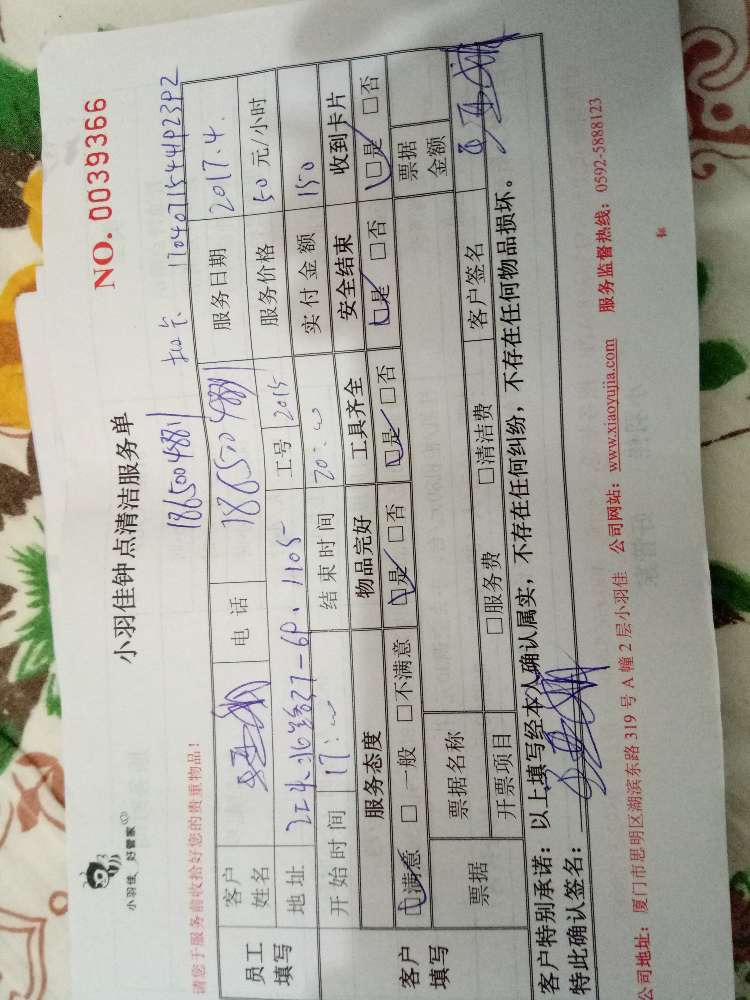 小羽佳 好管家
小羽佳钟点清洁服务单
NO. 0039366
请您于服务前收拾好您的贵重物品!
18650048831
17040715444P23P2
员工填写
客户姓名 电话 18650048831 服务日期 2017.4.
地址 27-6P.1105 工号 2015 服务价格 50 元/小时
开始时间 17: 结束时间 20: 实付金额 150
客户填写
服务态度 物品完好 工具齐全 安全结束 收到卡片
□满意 □一般 □不满意 □是 □否 □是 □否 □是 □否 □是 □否
票据 票据名称 票据金额
开票项目 □服务费 □清洁费 客户签名
客户特别承诺:以上填写经本人确认属实,不存在任何纠纷,不存在任何物品损坏。
特此确认签名:
公司地址:厦门市思明区湖滨东路 319 号 A 幢 2 层小羽佳 公司网站:www.xiaoyujia.com 服务监督热线:0592-5888123